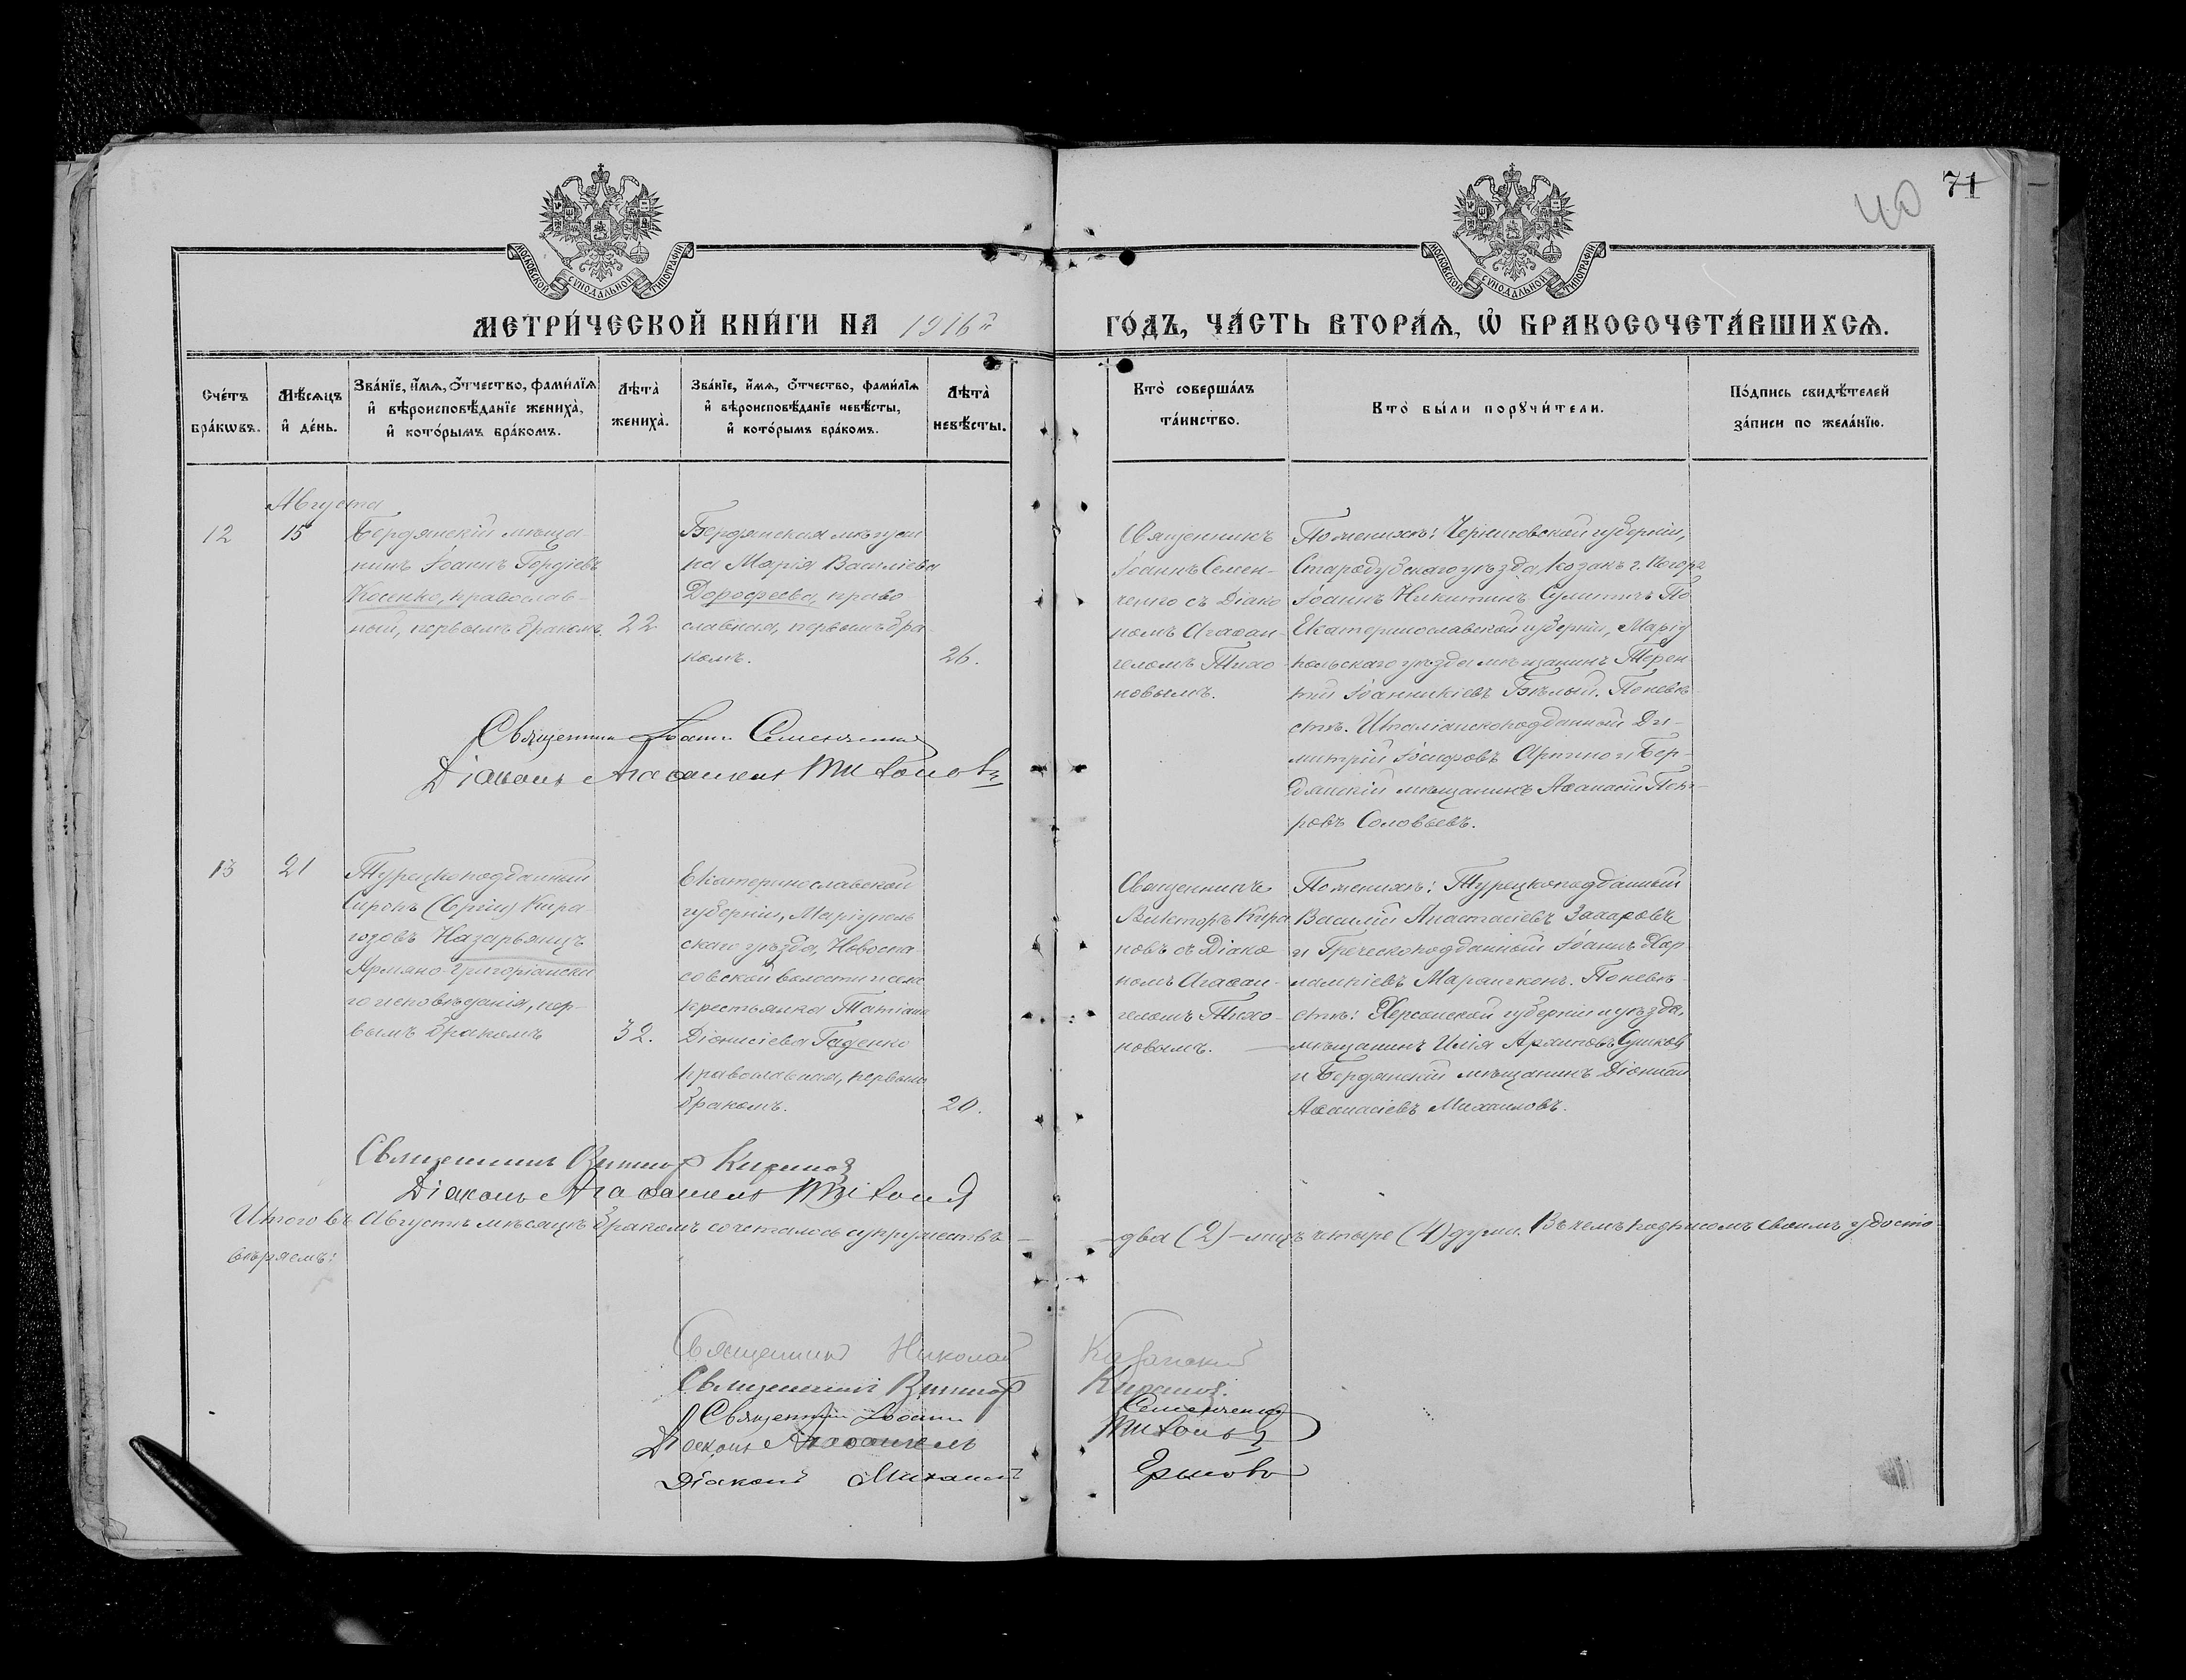 40
71
МОСКОВСКОЙ СѴНОДАЛЬНОЙ ТИПОГРАФІИ
МОСКОВСКОЙ СѴНОДАЛЬНОЙ ТИПОГРАФІИ
МЕТРИ́ЧЕСКОЙ КНИ́ГИ НА 1916й
ГО́ДЪ, ЧА́СТЬ ВТОРА́Ѧ, Ѡ҆ БРАКОСОЧЕТА́ВШИХСѦ.
Сче́тъ бра́кѡвъ.
Мѣ́сѧцъ и҆ де́нь.
Зва́нїе, и҆́мѧ, ѻ҆́тчество, фами́лїѧ
и҆ вѣроисповѣ́данїе жениха̀,
и҆ кото́рымъ бра́комъ.
Лѣта̀ жениха̀.
Зва́нїе, и҆́мѧ, ѻ҆́тчество, фами́лїѧ
и҆ вѣроисповѣ́данїе невѣ́сты,
и҆ кото́рымъ бра́комъ.
Лѣта̀ невѣ́сты.
Кто̀ соверша́лъ
та́инство.
Кто̀ бы́ли порꙋчи́тели.
По́дпись свидѣ́телей
за́писи по жела́нїю.
Августа
12
15
Бердянскій мѣща-
нинъ Іоаннъ Гордіевъ
Косенко, православ-
ный, первымъ бракомъ.
22
Бердянская мѣщан
ка Марія Васильева
Дорофеева, право-
славная, первымъ бра
комъ.
26.
Священникъ
Іоаннъ Семен-
ченко съ Діако
номъ Агаѳан-
геломъ Тихо
новымъ.
По женихѣ: Черниговской губерніи,
Стародубскаго уѣзда, козакъ г. Погара
Іоаннъ Никитинъ По
Екатеринославской губерніи, Маріу
польскаго уѣзда мѣщанинъ Терен
тій Іоанникіевъ Бѣлый. По невѣ-
стѣ. Италіанскоподданный Ди-
митрій Іосифовъ и Бер-
дянскій мѣщанинъ Аѳанасій Пет-
ровъ Соловьевъ.
Священникъ Іоаннъ Семенченко
Діаконъ Агаѳангелъ Тихоновъ
13
21
Турецкоподданный
(Сергій) Кира-
козовъ Назарьянцъ
Армяно-Григоріанска
го исповѣданія, пер-
вымъ бракомъ
32.
Екатеринославской
губерніи, Маріуполь
скаго уѣзда, Новоспа-
совской волости и села
крестьянка Татіана
Діонисіева Гаденко
православная, первымъ
бракомъ.
20.
Священникъ
Викторъ Кира
новъ съ Діако
номъ Агаѳан-
геломъ Тихо-
новымъ.
По женихѣ: Турецкоподданный
Василій Анастасіевъ Захаровъ
и Греческоподданный Іоаннъ Хар
лампіевъ Марангконъ. По невѣ-
стѣ: Херсонской губерніи и уѣзда,
мѣщанинъ Илія Архиповъ Сушковъ
и Бердянскій мѣщанинъ Діонисій
Аѳанасіевъ Михаиловъ.
Священникъ Викторъ Кирановъ
Діаконъ Агаѳангелъ Тихоновъ
Итого въ Августѣ мѣсяцѣ бракомъ сочеталось супружествъ — два (2) – лицъ четыре (4) души. Въ чемъ подписомъ своимъ удосто-
вѣряемъ:
Священникъ Николай Казанский
Священникъ Викторъ Кирановъ.
Священникъ Іоаннъ Семенченко
Діаконъ Агаѳангелъ Тихоновъ
Діаконъ Михаилъ Ершовъ